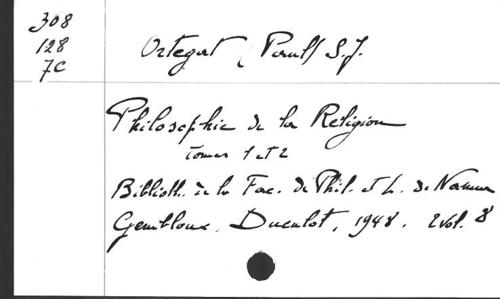 308
128
7C
Ortegat (Paul) S.J.
Philosophie de la Religion
tomes 1 et 2
Biblioth. de la Fac. de Phil. et L. de Namur
Gembloux. Duculot, 1948. 2 vol. 8